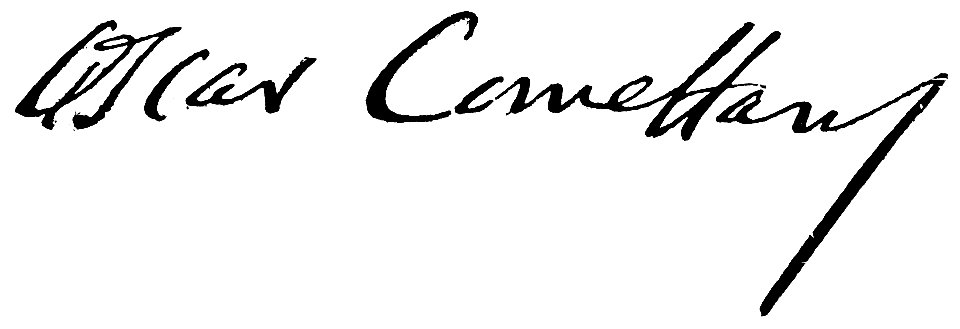 Oscar Comettant